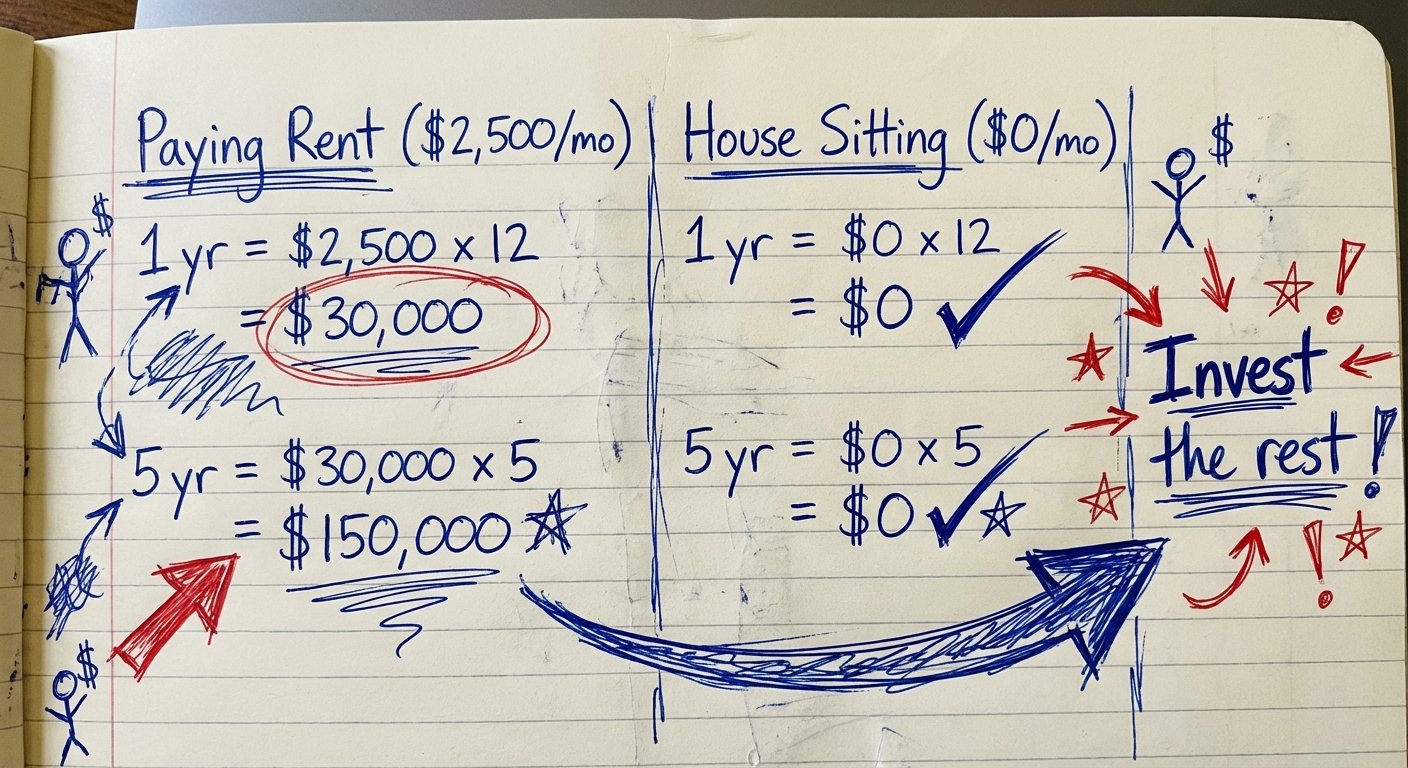 Paying Rent ($2,500/mo)
1 yr = $2,500 x 12
= $30,000
5 yr = $30,000 x 5
= $150,000
House Sitting ($0/mo)
1 yr = $0 x 12
= $0
5 yr = $0 x 5
= $0
$
$
$
!
Invest
the rest!
!